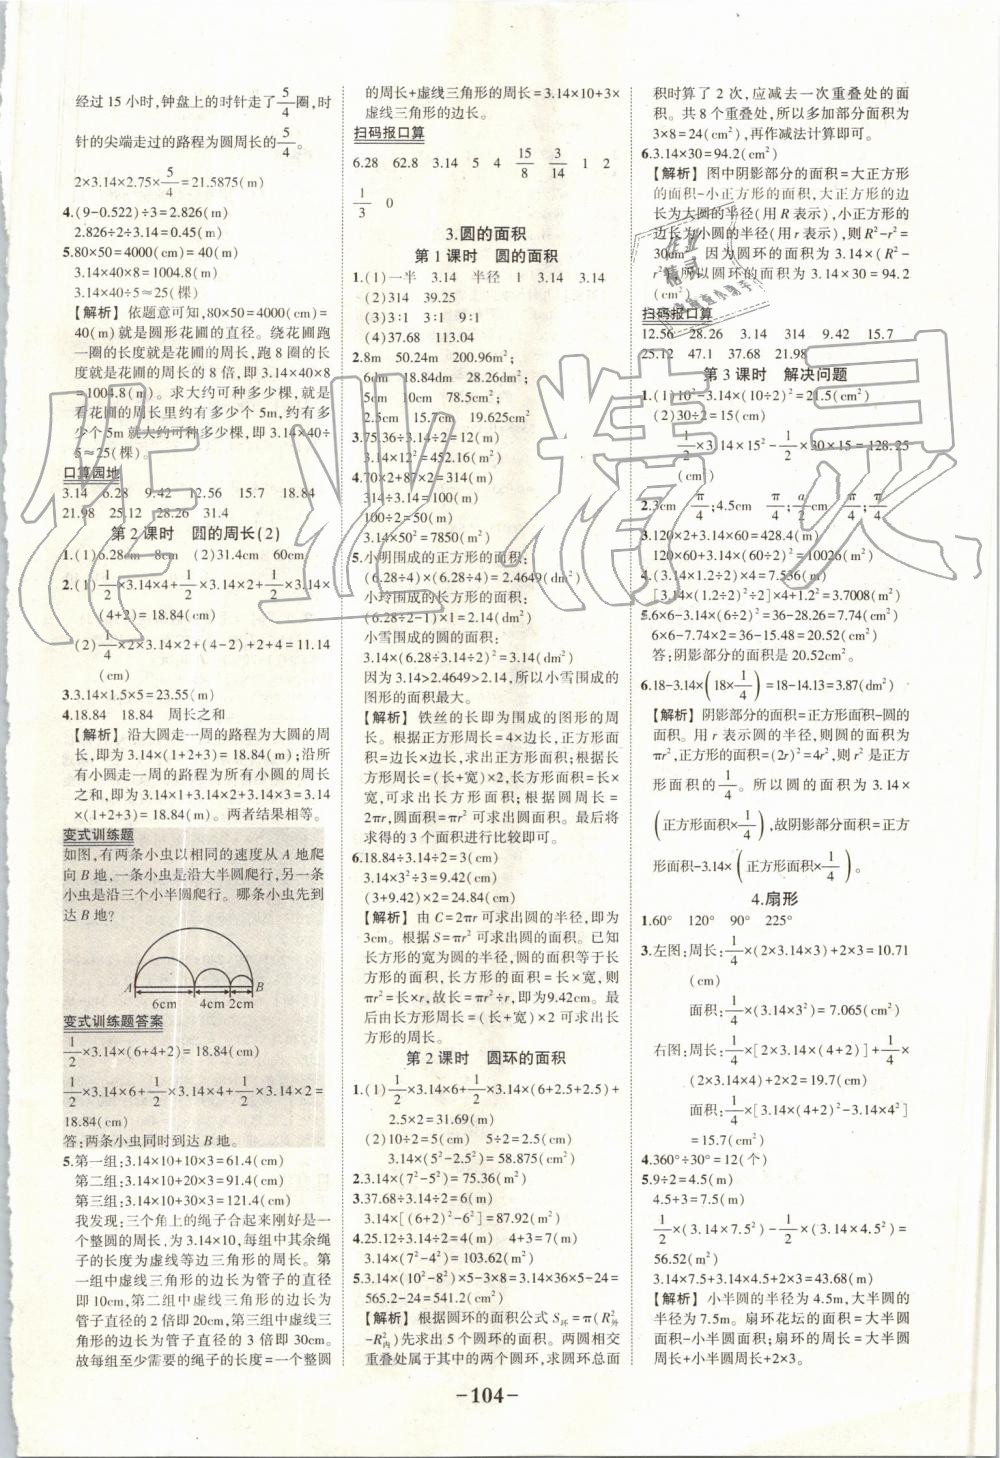 经过 15 小时,钟盘上的时针走了5/4圈,时
针的尖端走过的路程为圆周长的5/4。
2×3.14×2.75×5/4=21.5875(m)
4.(9-0.522)÷3=2.826(m)
2.826÷2÷3.14=0.45(m)
5.80×50=4000(cm)=40(m)
3.14×40×8=1004.8(m)
3.14×40÷5≈25(棵)
【解析】 依题意可知,80×50=4000(cm)=
40(m)就是圆形花圃的直径。绕花圃跑
一圈的长度就是花圃的周长,跑 8 圈的长
度就是花圃的周长的 8 倍,即 3.14×40×8
=1004.8(m)。求大约可种多少棵,就是
看花圃的周长里约有多少个 5m,约有多
少个 5m 就大约可种多少棵,即 3.14×40÷
5≈25(棵)。
口算园地
3.14 6.28 9.42 12.56 15.7 18.84
21.98 25.12 28.26 31.4
第 2 课时 圆的周长(2)
1.(1)6.28m 8cm (2)31.4cm 60cm
2.(1)1/2×3.14×4+1/2×3.14×2+1/2×3.14×
(4+2)=18.84(cm)
(2)1/4×2×3.14×2×2+(4-2)+2+4=11.14
(cm)
3.3.14×1.5×5=23.55(m)
4.18.84 18.84 周长之和
【解析】 沿大圆走一周的路程为大圆的周
长,即为 3.14×(1+2+3)=18.84(m);沿所
有小圆走一周的路程为所有小圆的周长
之和,即为 3.14×1+3.14×2+3.14×3=3.14×
(1+2+3)=18.84(m)。两者结果相等。
变式训练题
如图,有两条小虫以相同的速度从 A 地爬
向 B 地,一条小虫是沿大半圆爬行,另一条
小虫是沿三个小半圆爬行。哪条小虫先到
达 B 地?
A B
6cm 4cm 2cm
变式训练题答案
1/2×3.14×(6+4+2)=18.84(cm)
1/2×3.14×6+1/2×3.14×4+1/2×3.14×2=
18.84(cm)
答:两条小虫同时到达 B 地。
5.第一组:3.14×10+10×3=61.4(cm)
第二组:3.14×10+20×3=91.4(cm)
第三组:3.14×10+30×3=121.4(cm)
我发现:三个角上的绳子合起来刚好是一
个整圆的周长,为 3.14×10,每组中其余绳
子的长度为虚线等边三角形的周长。第
一组中虚线三角形的边长为管子的直径
即10cm,第二组中虚线三角形的边长为管
子直径的 2 倍即 20cm,第三组中虚线三
角形的边长为管子直径的 3 倍即 30cm。
故每组至少需要的绳子的长度=一个整圆
的周长+虚线三角形的周长=3.14×10+3×
虚线三角形的边长。
扫码报口算
6.28 62.8 3.14 5 4 15/8 3/14 1 2
1/3 0
3.圆的面积
第 1 课时 圆的面积
1.(1)一半 3.14 半径 1 3.14 3.14
(2)314 39.25
(3)3:1 3:1 9:1
(4)37.68 113.04
2.8m 50.24m 200.96m²;
6dm 18.84dm 28.26dm²;
5cm 10cm 78.5cm²;
2.5cm 15.7cm 19.625cm²
3.75.36÷3.14÷2=12(m)
3.14×12²=452.16(m²)
4.70×2+87×2=314(m)
314÷3.14=100(m)
100÷2=50(m)
3.14×50²=7850(m²)
5.小明围成的正方形的面积:
(6.28÷4)×(6.28÷4)=2.4649(dm²)
小玲围成的长方形的面积:
(6.28÷2-1)×1=2.14(dm²)
小雪围成的圆的面积:
3.14×(6.28÷3.14÷2)²=3.14(dm²)
因为 3.14>2.4649>2.14,所以小雪围成的
图形的面积最大。
【解析】 铁丝的长即为围成的图形的周
长。根据正方形周长=4×边长,正方形面
积=边长×边长,求出正方形面积;根据长
方形周长=(长+宽)×2,长方形面积=长×
宽,可求出长方形面积;根据圆周长=
2πr,圆面积=πr² 可求出圆面积。最后将
求得的 3 个面积进行比较即可。
6.18.84÷3.14÷2=3(cm)
3.14×3²÷3=9.42(cm)
(3+9.42)×2=24.84(cm)
【解析】 由 C=2πr 可求出圆的半径,即为
3cm。根据 S=πr² 可求出圆的面积。已知
长方形的宽为圆的半径,圆的面积等于长
方形的面积,长方形的面积=长×宽,则
πr²=长×r,故长=πr²÷r,即为9.42cm。最
后由长方形周长=(长+宽)×2 可求出长
方形的周长。
第 2 课时 圆环的面积
1.(1)1/2×3.14×6+1/2×3.14×(6+2.5+2.5)+
2.5×2=31.69(m)
(2)10÷2=5(cm) 5÷2=2.5(cm)
3.14×(5²-2.5²)=58.875(cm²)
2.3.14×(7²-5²)=75.36(m²)
3.37.68÷3.14÷2=6(m)
3.14×[(6+2)²-6²]=87.92(m²)
4.25.12÷3.14÷2=4(m) 4+3=7(m)
3.14×(7²-4²)=103.62(m²)
5.3.14×(10²-8²)×5-3×8=3.14×36×5-24=
565.2-24=541.2(cm²)
【解析】 根据圆环的面积公式 S环=π(R²外
-R²内)先求出 5 个圆环的面积。两圆相交
重叠处属于其中的两个圆环,求圆环总面
积时算了 2 次,应减去一次重叠处的面
积。共 8 个重叠处,所以多加部分面积为
3×8=24(cm²),再作减法计算即可。
6.3.14×30=94.2(cm²)
【解析】 图中阴影部分的面积=大正方形
的面积-小正方形的面积,大正方形的边
长为大圆的半径(用 R 表示),小正方形的
边长为小圆的半径(用 r 表示),则 R²-r²=
30cm² 因为圆环的面积为 3.14×(R²-
r²),所以圆环的面积为 3.14×30=94.2
(cm²)。
扫码报口算
12.56 28.26 3.14 314 9.42 15.7
25.12 47.1 37.68 21.98
第 3 课时 解决问题
1.(1)10²-3.14×(10÷2)²=21.5(cm²)
(2)30÷2=15(cm)
1/2×3.14×15²-1/2×30×15=128.25
(cm²)
2.3cm π/4;4.5cm π/4;a/2cm π/4
3.120×2+3.14×60=428.4(m)
120×60+3.14×(60÷2)²=10026(m²)
4.(3.14×1.2÷2)×4=7.536(m)
[3.14×(1.2÷2)²÷2]×4+1.2²=3.7008(m²)
5.6×6-3.14×(6÷2)²=36-28.26=7.74(cm²)
6×6-7.74×2=36-15.48=20.52(cm²)
答:阴影部分的面积是 20.52cm²。
6.18-3.14×(18×1/4)=18-14.13=3.87(dm²)
【解析】 阴影部分的面积=正方形面积-圆的
面积。用 r 表示圆的半径,则圆的面积为
πr²,正方形的面积=(2r)²=4r²,则 r² 是正方
形面积的1/4。所以圆的面积为 3.14×
(正方形面积×1/4),故阴影部分面积=正方
形面积-3.14×(正方形面积×1/4)。
4.扇形
1.60° 120° 90° 225°
3.左图:周长:1/4×(2×3.14×3)+2×3=10.71
(cm)
面积:1/4×(3.14×3²)=7.065(cm²)
右图:周长:1/4×[2×3.14×(4+2)]+1/4×
(2×3.14×4)+2×2=19.7(cm)
面积:1/4×[3.14×(4+2)²-3.14×4²]
=15.7(cm²)
4.360°÷30°=12(个)
5.9÷2=4.5(m)
4.5+3=7.5(m)
1/2×(3.14×7.5²)-1/2×(3.14×4.5²)=
56.52(m²)
3.14×7.5+3.14×4.5+3×2=43.68(m)
【解析】 小半圆的半径为 4.5m,大半圆的
半径为 7.5m。扇环花坛的面积=大半圆
面积-小半圆面积;扇环的周长=大半圆
周长+小半圆周长+2×3。
-104-
作业精灵